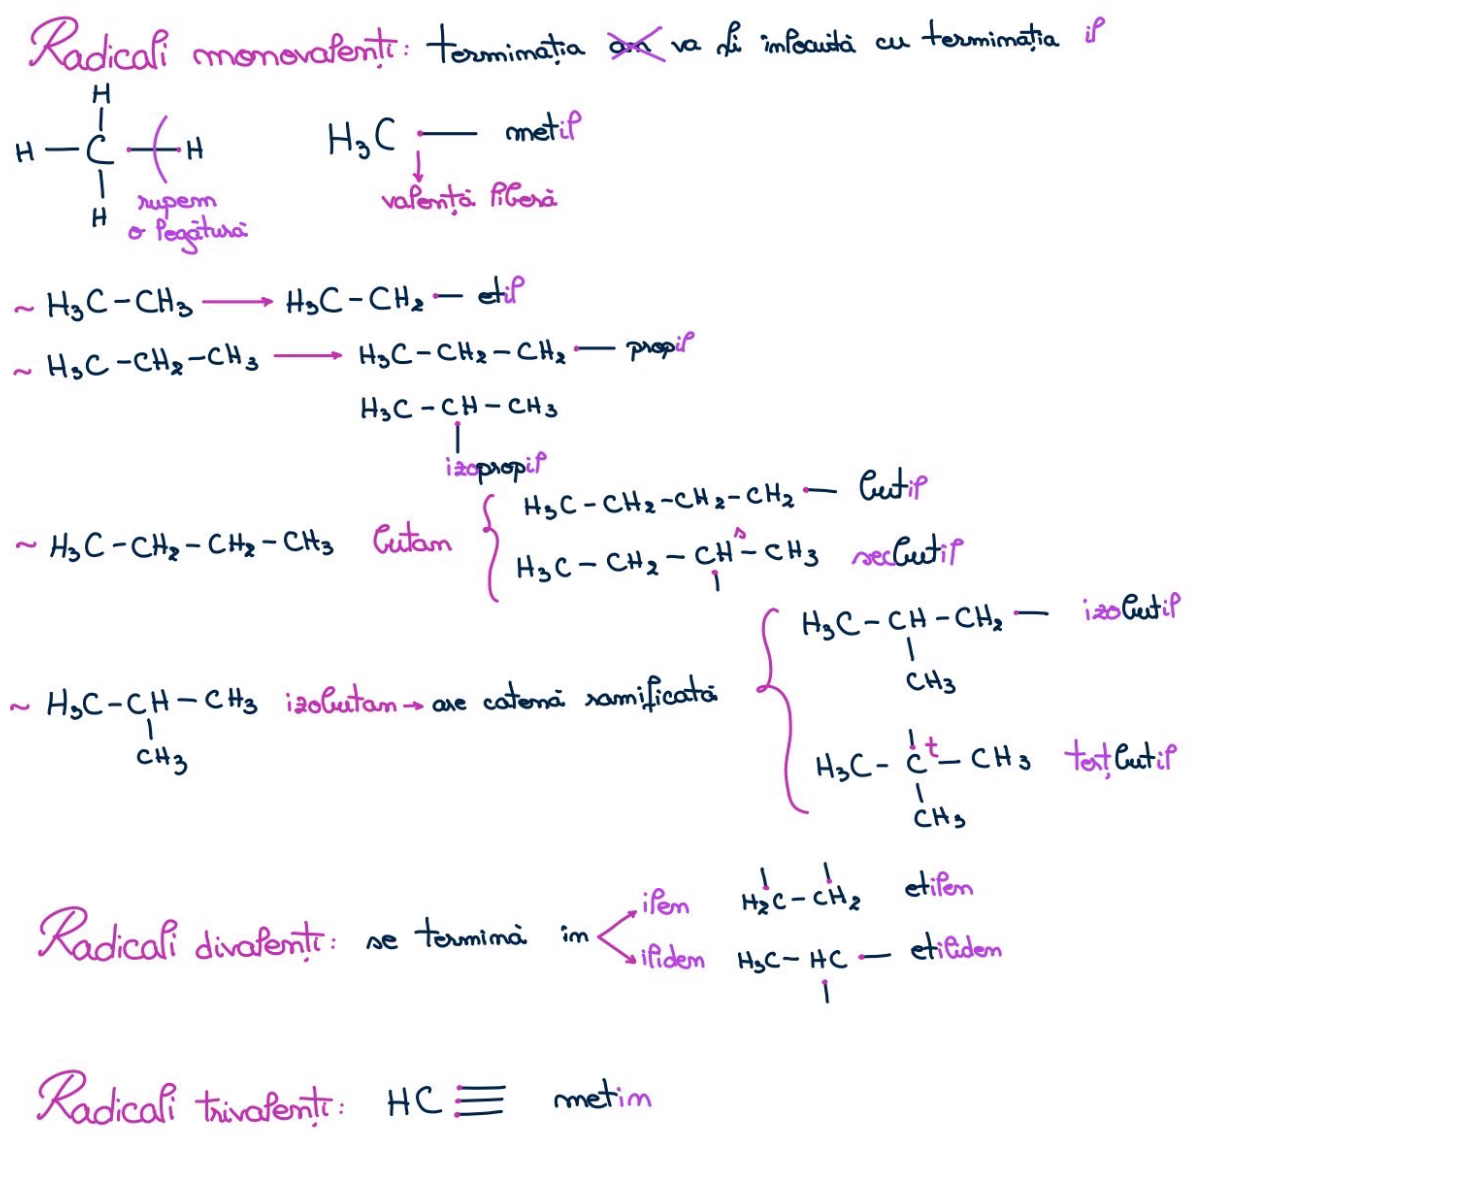 Radicali monovalenți: terminația an va fi înlocuită cu terminația il
H
H — C — H
H
rupem
o legătură
H₃C — metil
valență liberă
~ H₃C – CH₃ → H₃C – CH₂ — etil
~ H₃C – CH₂ – CH₃ → H₃C – CH₂ – CH₂ — propil
H₃C – CH – CH₃
izopropil
~ H₃C – CH₂ – CH₂ – CH₃ butan
H₃C – CH₂ – CH₂ – CH₂ — butil
H₃C – CH₂ – CHˢ – CH₃ secbutil
~ H₃C – CH – CH₃ izobutan → are catenă ramificată
CH₃
H₃C – CH – CH₂ — izobutil
CH₃
H₃C – Cᵗ – CH₃ terțbutil
CH₃
Radicali divalenți: se termină în
ilen H₂C – CH₂ etilen
iliden H₃C – HC — etiliden
Radicali trivalenți: HC ≡ metin